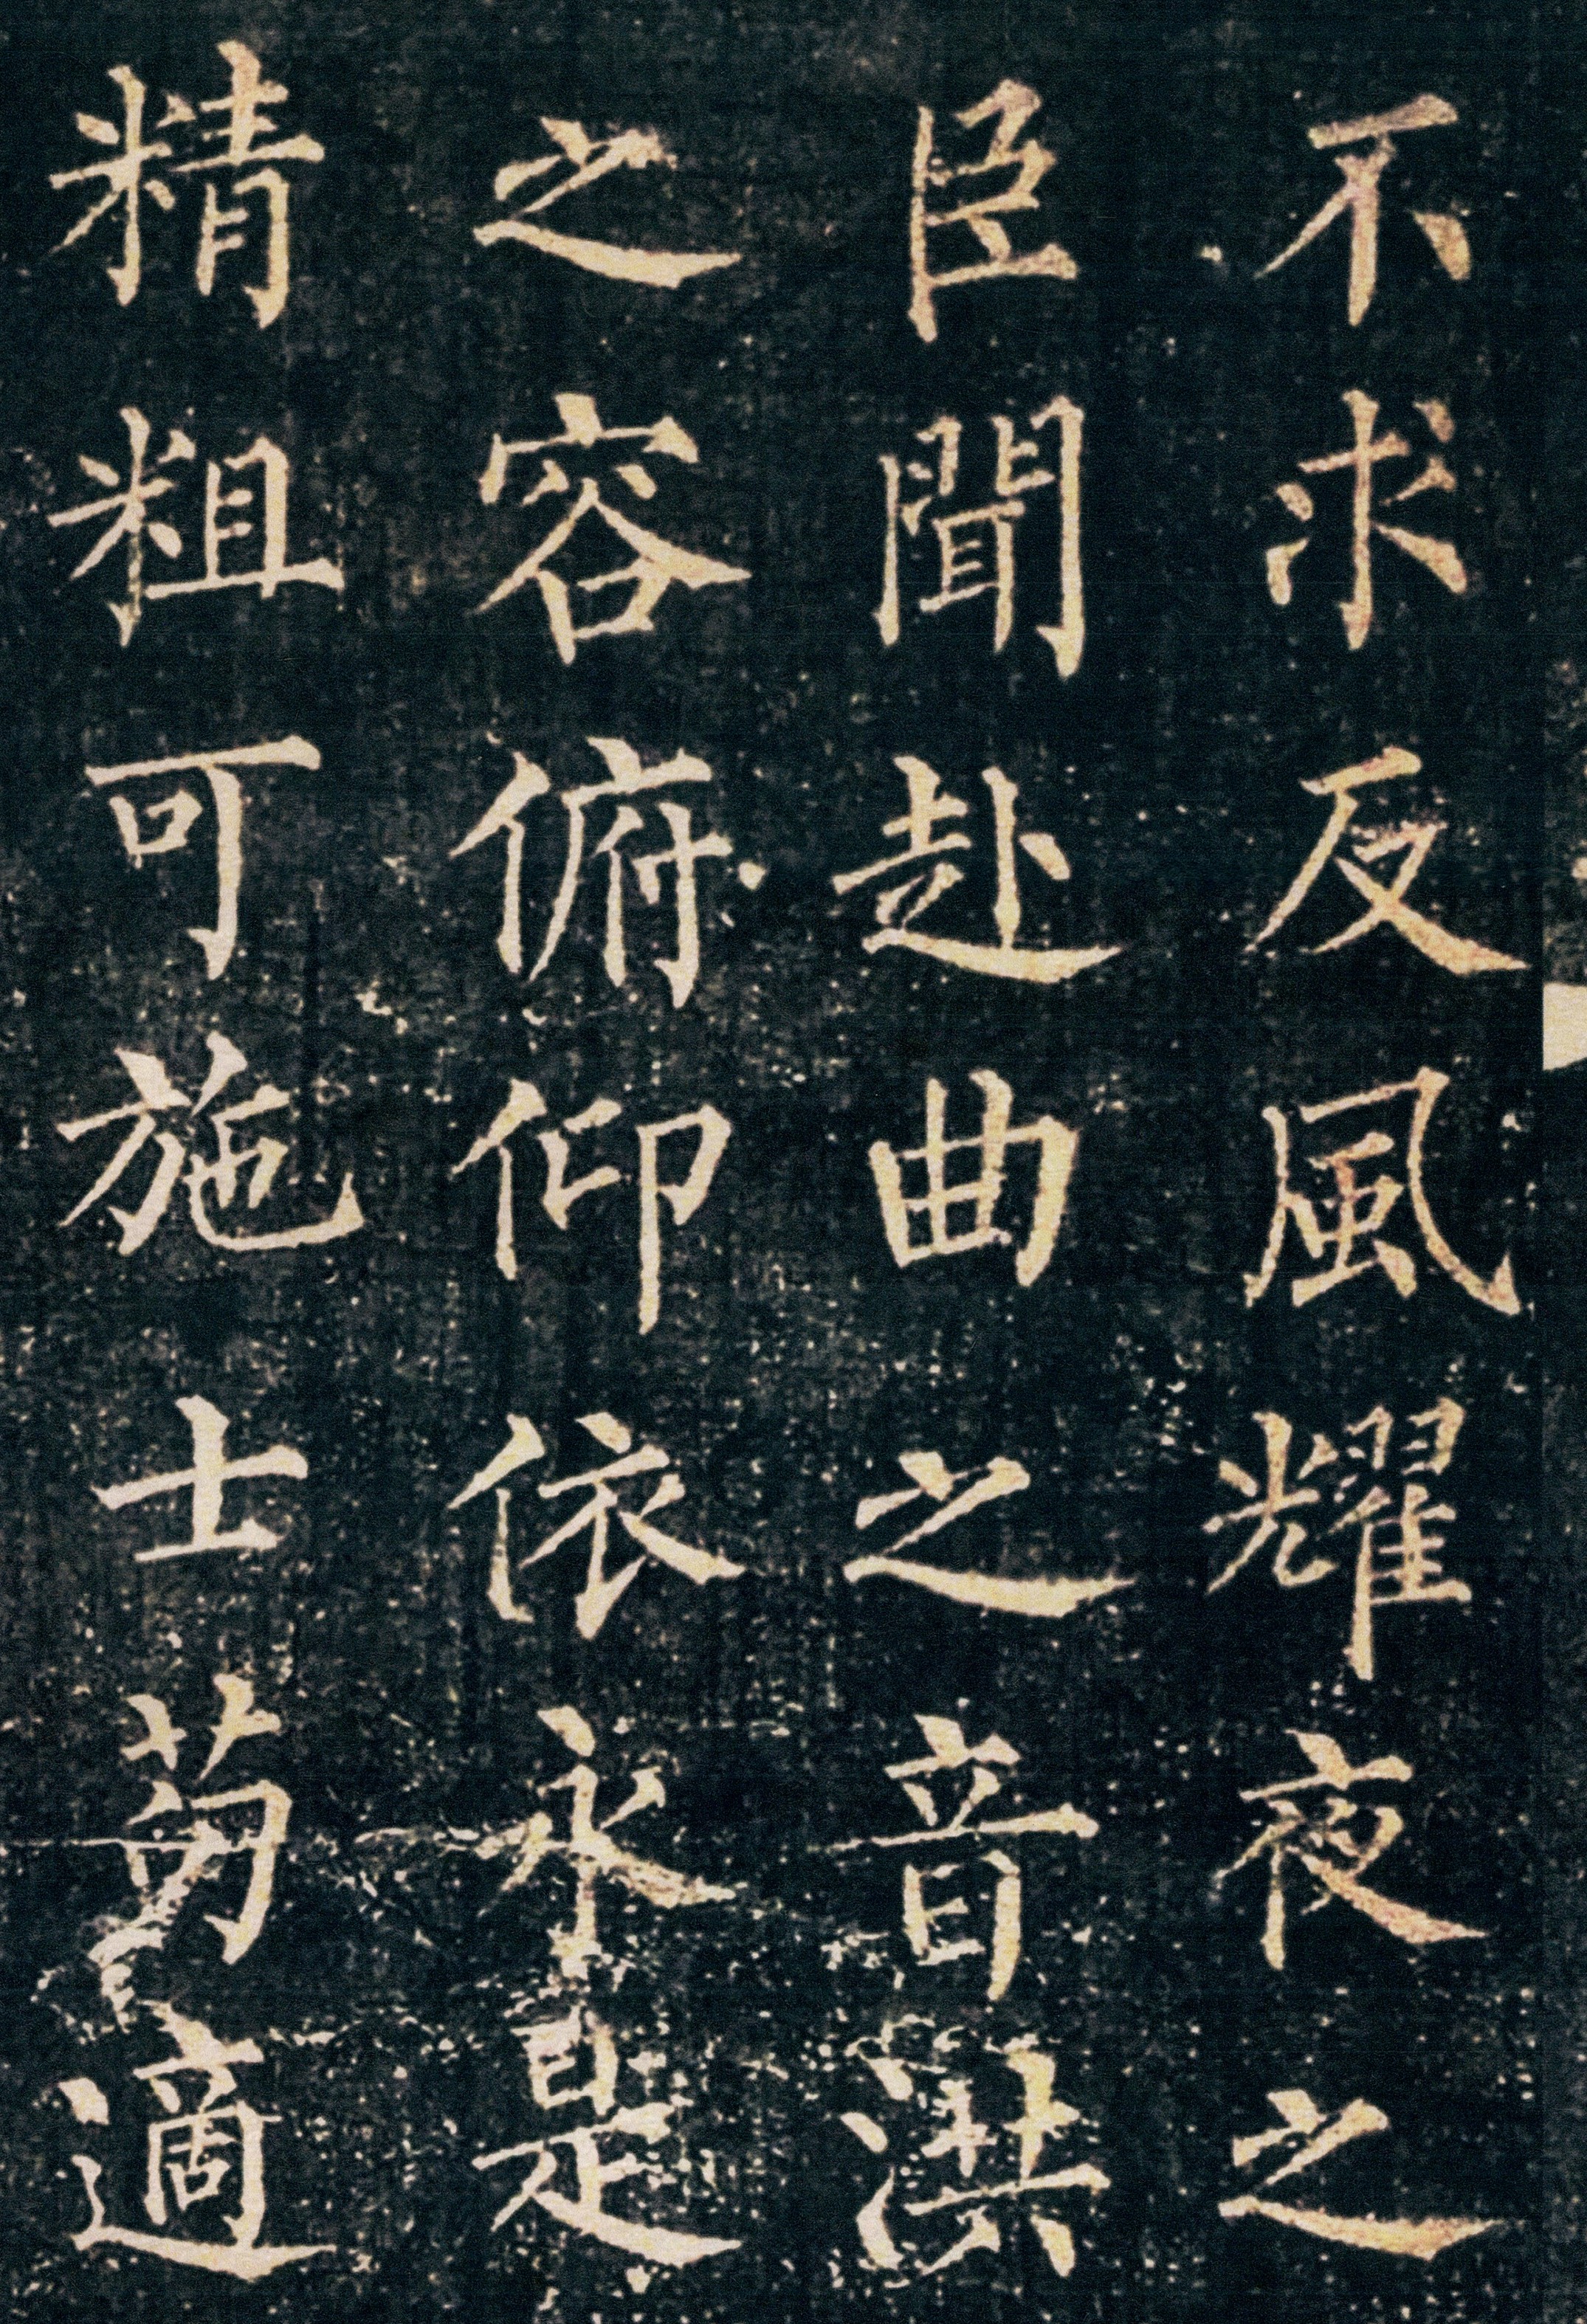 不求反風耀夜之
臣聞赴曲之音洪
之容俯仰依永是
精粗可施士苟適